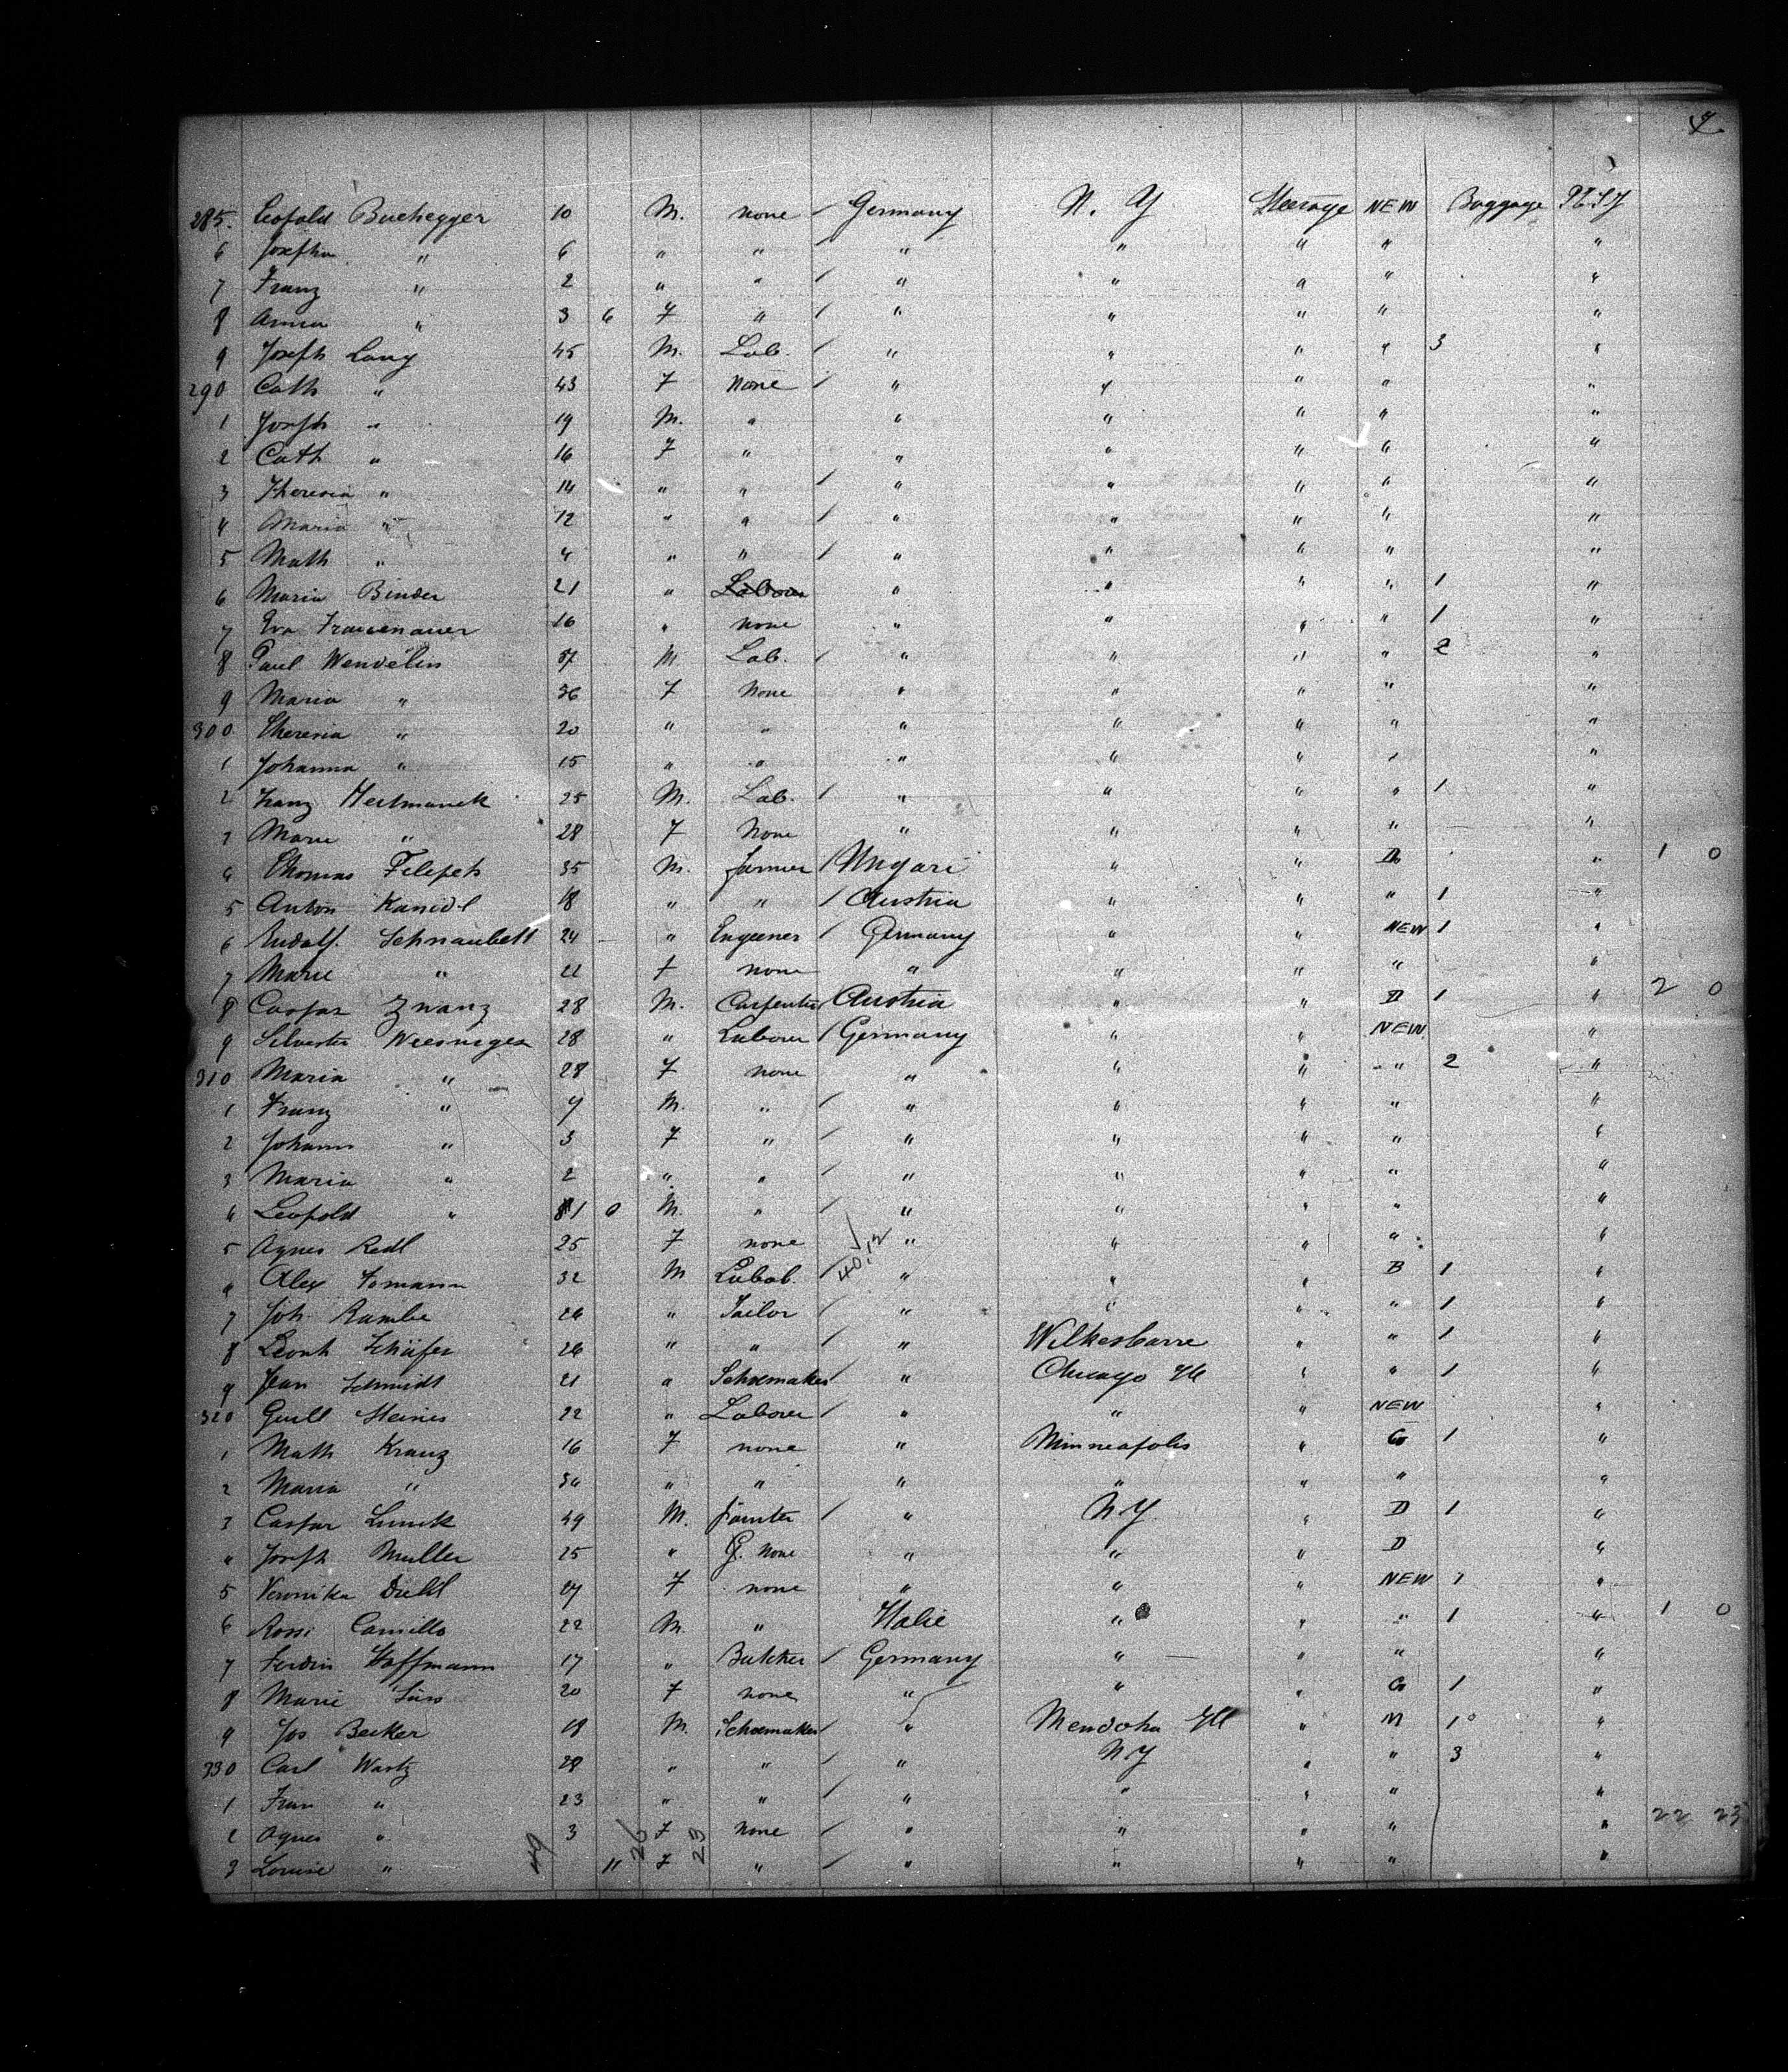 4
285. Leopold Buchegger 10 M. none / Germany N. Y Steerage NEW Baggage
6 Josepha " 6 " " / " " " " "
7 Franz " 2 " " / " " " " "
8 Anna " 3 6 F " / " " " " "
9 Joseph Lang 45 M. Lab. / " " " " 3 "
290 Cath " 43 F none / " " " " "
1 Joseph " 19 M. " " " " " "
2 Cath " 16 F " " " " " "
3 Theresia " 14 " " / " " " " "
4 Maria " 12 " " / " " " " "
5 Math " 4 " " / " " " " "
6 Maria Binder 21 " Labour " " " " 1 "
7 Eva Frauenauer 16 " none " " " " 1 "
8 Paul Wendelin 37 M Lab. / " " " " 2 "
9 Maria " 36 F None " " " " "
300 Theresia " 20 " " " " " " "
1 Johanna " 15 " " " " " " "
2 Franz 25 M. Lab. / " " " " 1 "
3 Marie " 28 F None " " " " "
4 Thomas Filipets 35 M. farmer / Ungari " " D " 1 0
5 Anton Kanedl 18 " " / Austria " " " 1 "
6 Rudolf. Schnaubelt 24 " Engeener / Germany " " NEW 1 "
7 Marie " 22 F none " " " " "
8 Caspar Zwanz 28 M. Carpenter Austria " " D 1 " 2 0
9 Silvester 28 " Laborer / Germany " " NEW "
310 Maria " 28 F none " " " " 2 "
1 Franz " 4 M. " / " " " " "
2 Johann " 3 F " / " " " " "
3 Maria " 2 " " / " " " " "
4 Leopold " 1 0 M. " / " " " " "
5 Agnes Redl 25 F none " " " " "
6 Alex 32 M / " " " B 1 "
40,12
7 Joh. Rambe 26 " Tailor / " " " " 1 "
8 Leonh Schäfer 26 " " / " Wilkesbarre " " 1 "
9 Jean Schmidt 21 " Schoemaker / " Chicago Ill " " 1 "
320 Steines 22 " Laborer / " " " NEW "
1 Math Kranz 16 F none " Minneapolis " G 1 "
2 Maria " " " " " " " "
3 Caspar 49 M. / " N Y. " D 1 "
4 Joseph Muller 25 " none " " " D "
5 Veronika Diehl F none " " " NEW 1 "
6 Rossi Camillo 22 M. " Italie " " " 1 " 1 0
7 Ferdin Hoffmann 17 " Butcher / Germany " " " "
8 Marie Süss 20 F none " " " G 1 "
9 Jos Becker 18 M. Schoemaker / " Mendoha Ill " M 1 "
330 Carl Wartz 28 " " / " N Y " " 3 "
1 Fran " 23 " " / " " " " "
2 Agnes " 3 F none / " " " " " 22 23
3 Louise " 11 F " / " " " " "
49 26 23